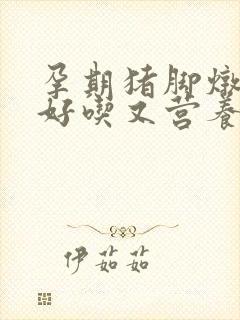 孕期猪脚燉
好喫又营养
伊茹茹